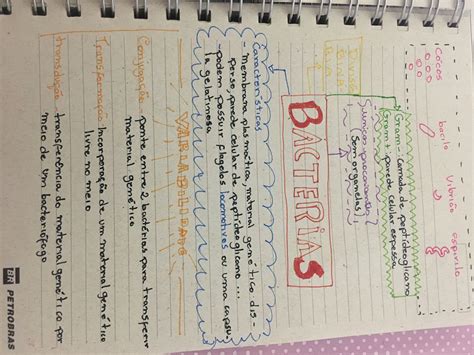 Cocos
bacilo
Vibrião
espirilo
Gram - Camada de peptideoglicano
Gram + parede celular espessa
Únicos procariontes
(sem organelas)
BACTERIAS
Características
- Membrana plasmática, material genético dis-
perso, parede celular de peptideoglicano...
- podem possuir flagelos locomotivos ou uma capsu-
la gelatinosa
VARIABILIDADE
Conjugação ponte entre 2 bactérias para transferir
material genético
Transformação Incorporação de um material genético
livre no meio
transdução transferência do material genético por
meio de um bacteriófago
BR PETROBRAS